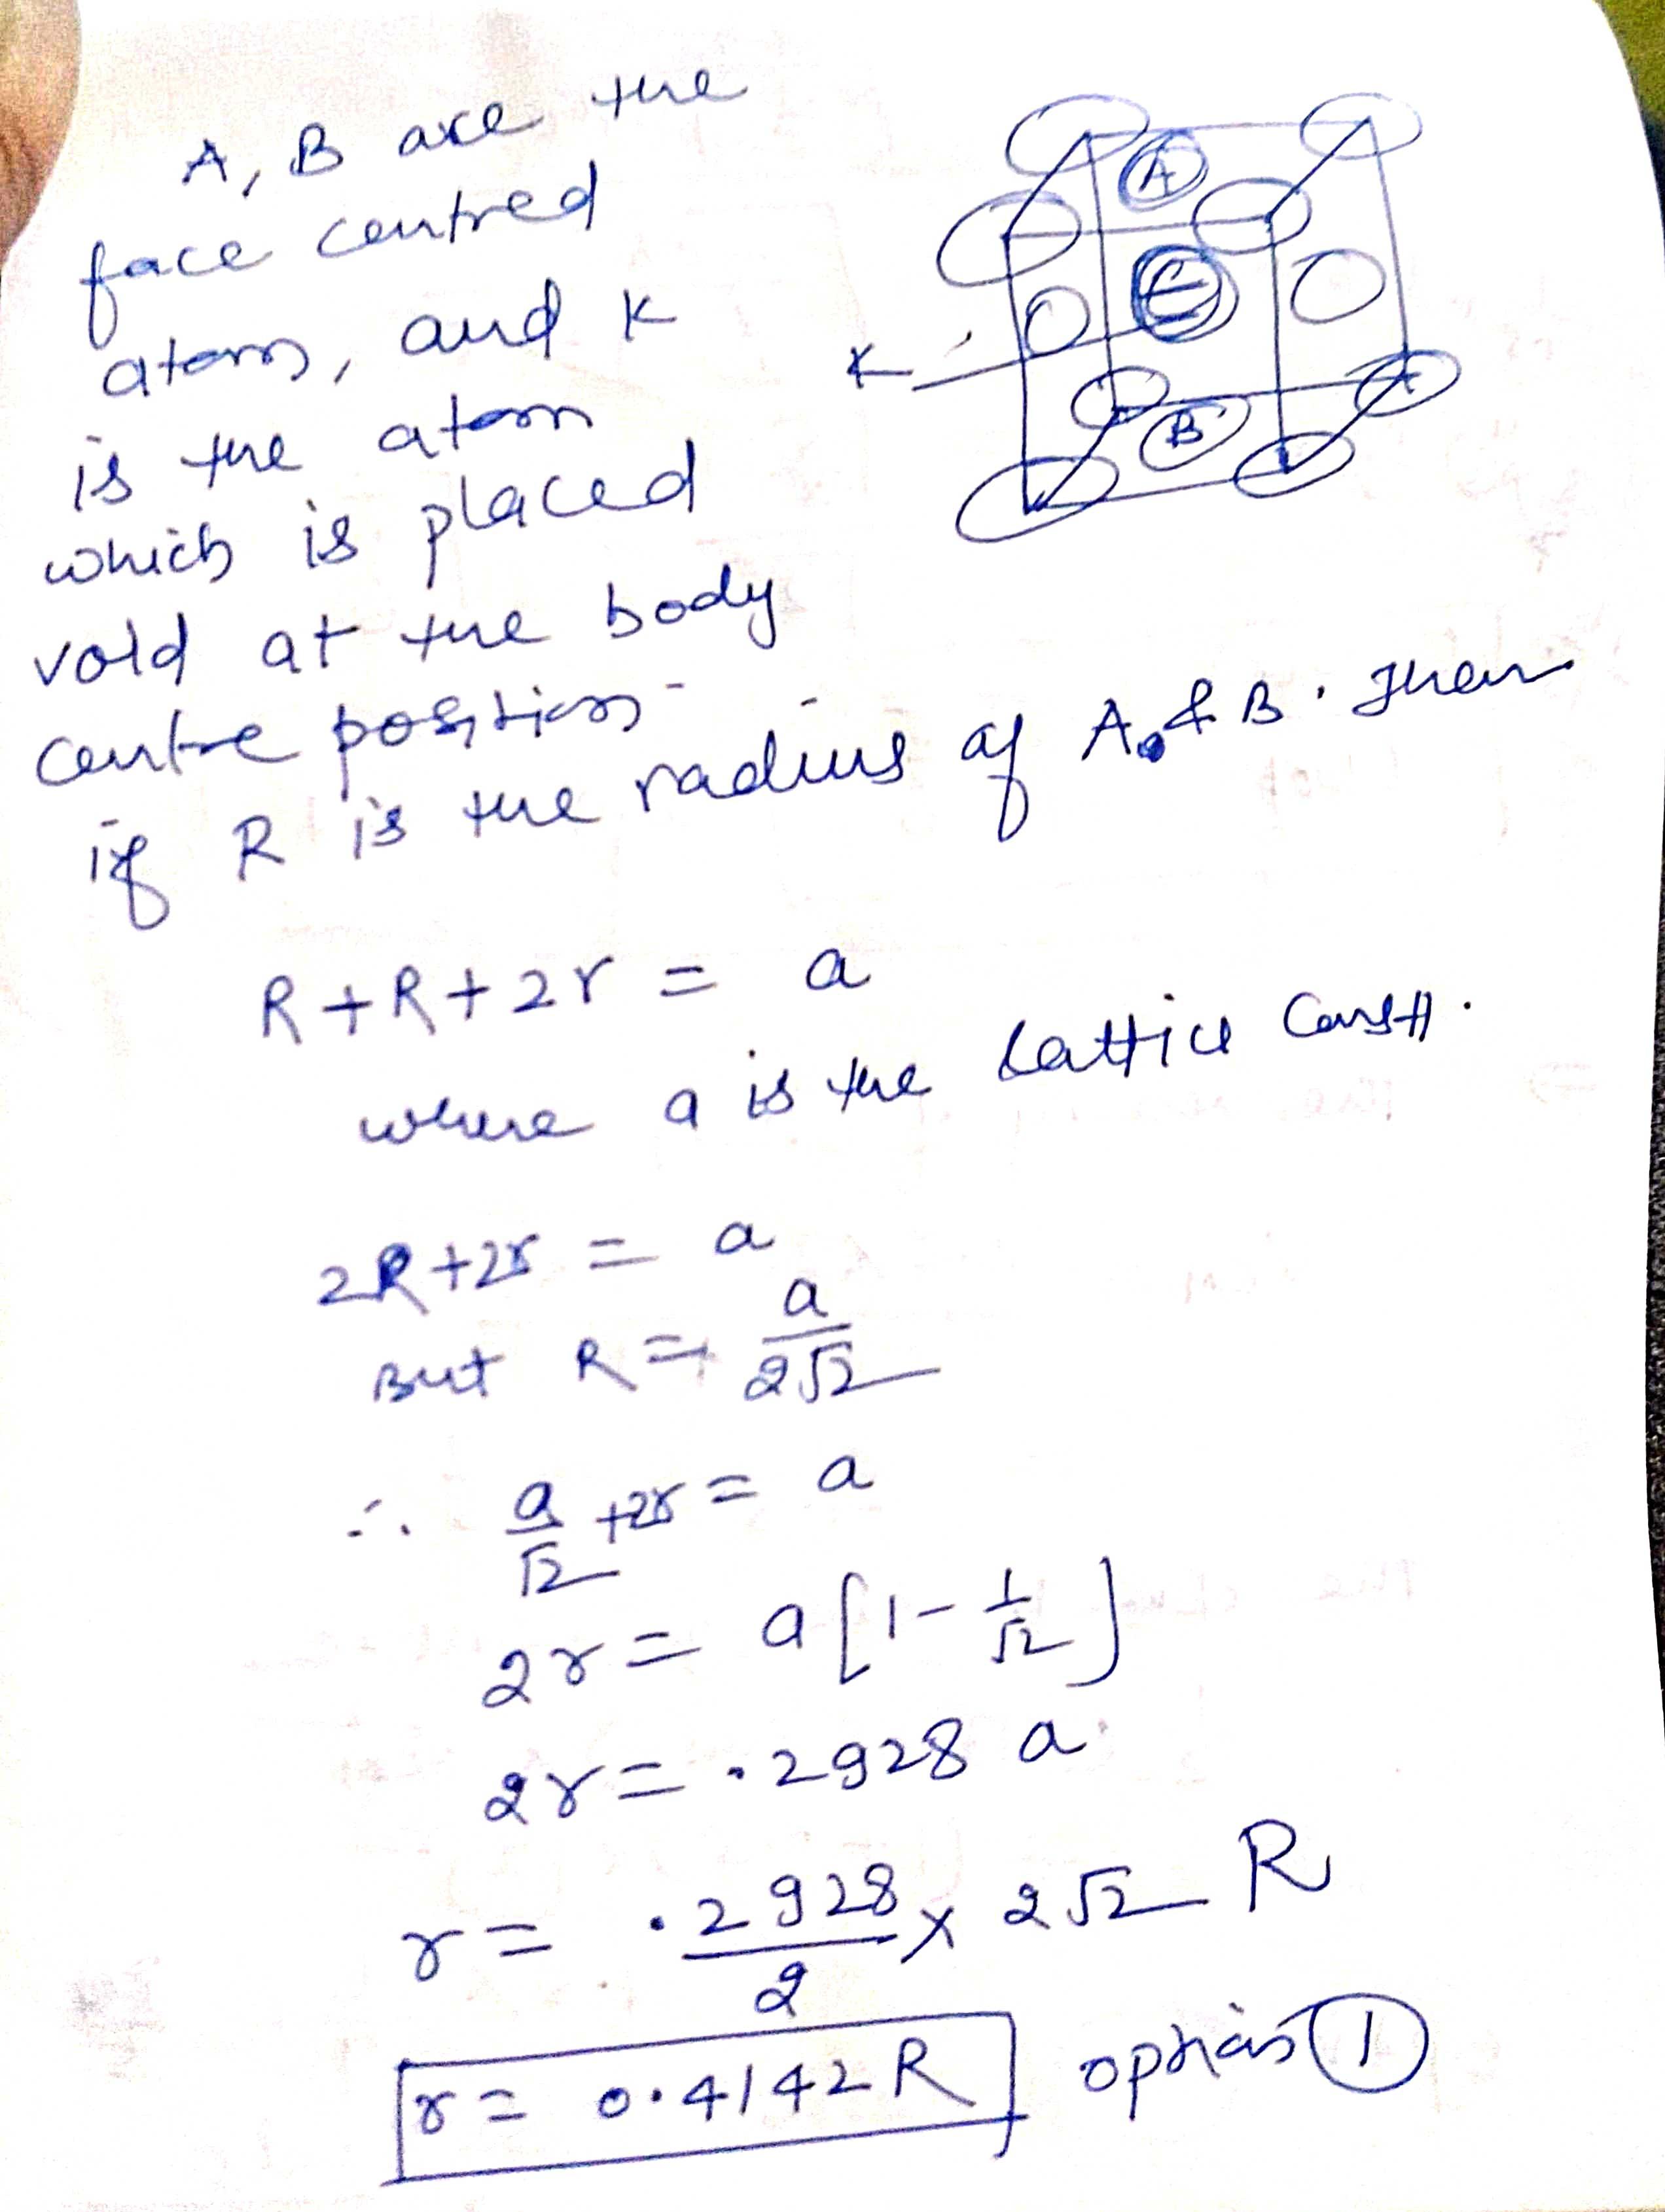 A, B are the
face centred
atoms, and K
is the atom
which is placed
void at the body
centre position
if R is the radius of A & B. Then
A
K
B
R + R + 2r = a
where a is the Lattice Constt.
2R + 2r = a
But R = a/2√2
∴ a/√2 + 2r = a
2r = a[1 - 1/√2]
2r = .2928 a
r = .2928/2 × 2√2 R
r = 0.4142 R option 1